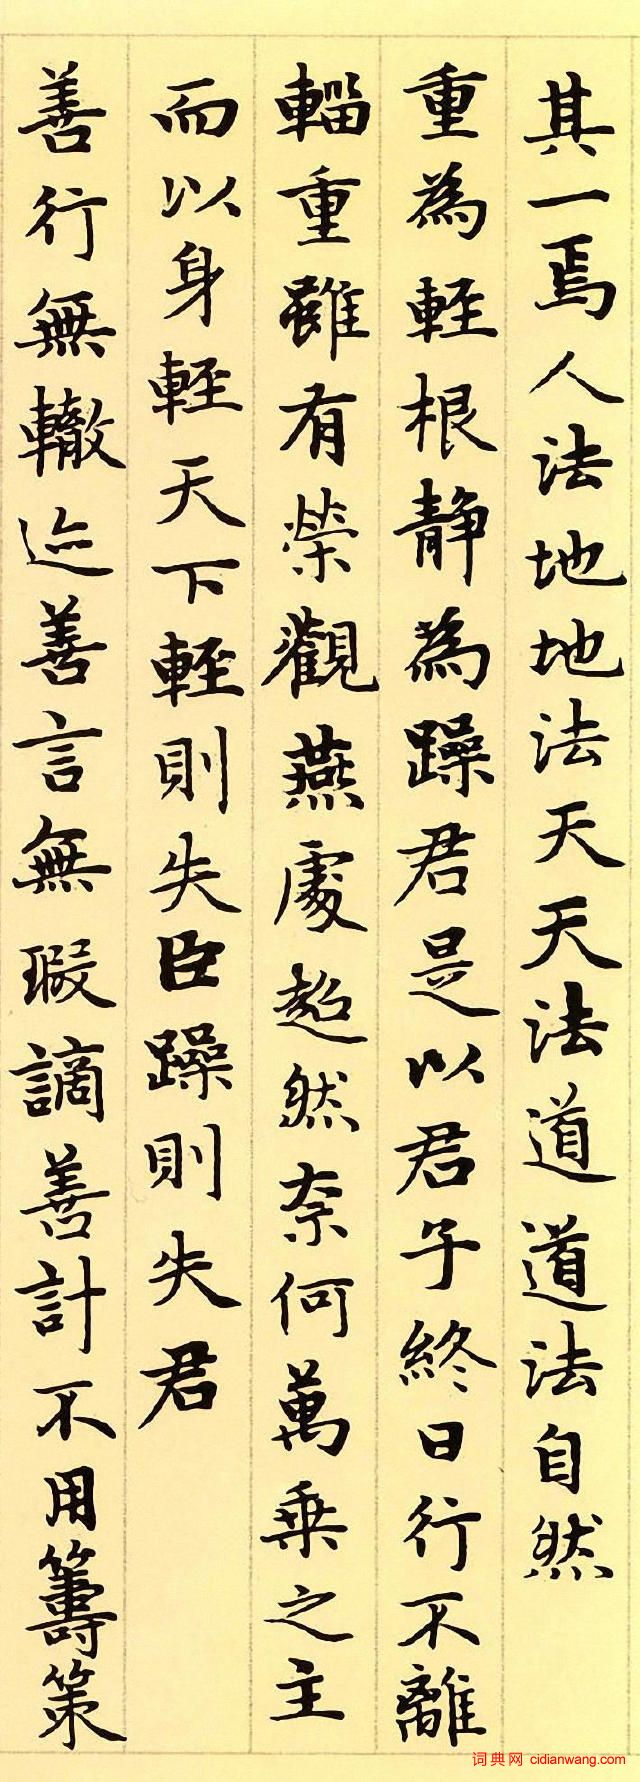 其一焉人法地地法天天法道道法自然
重為輕根静為躁君是以君子終日行不離
輜重雖有榮觀燕處超然奈何萬乗之主
而以身輕天下輕則失臣躁則失君
善行無轍迹善言無瑕謫善計不用籌策
词典网 cidianwang.com